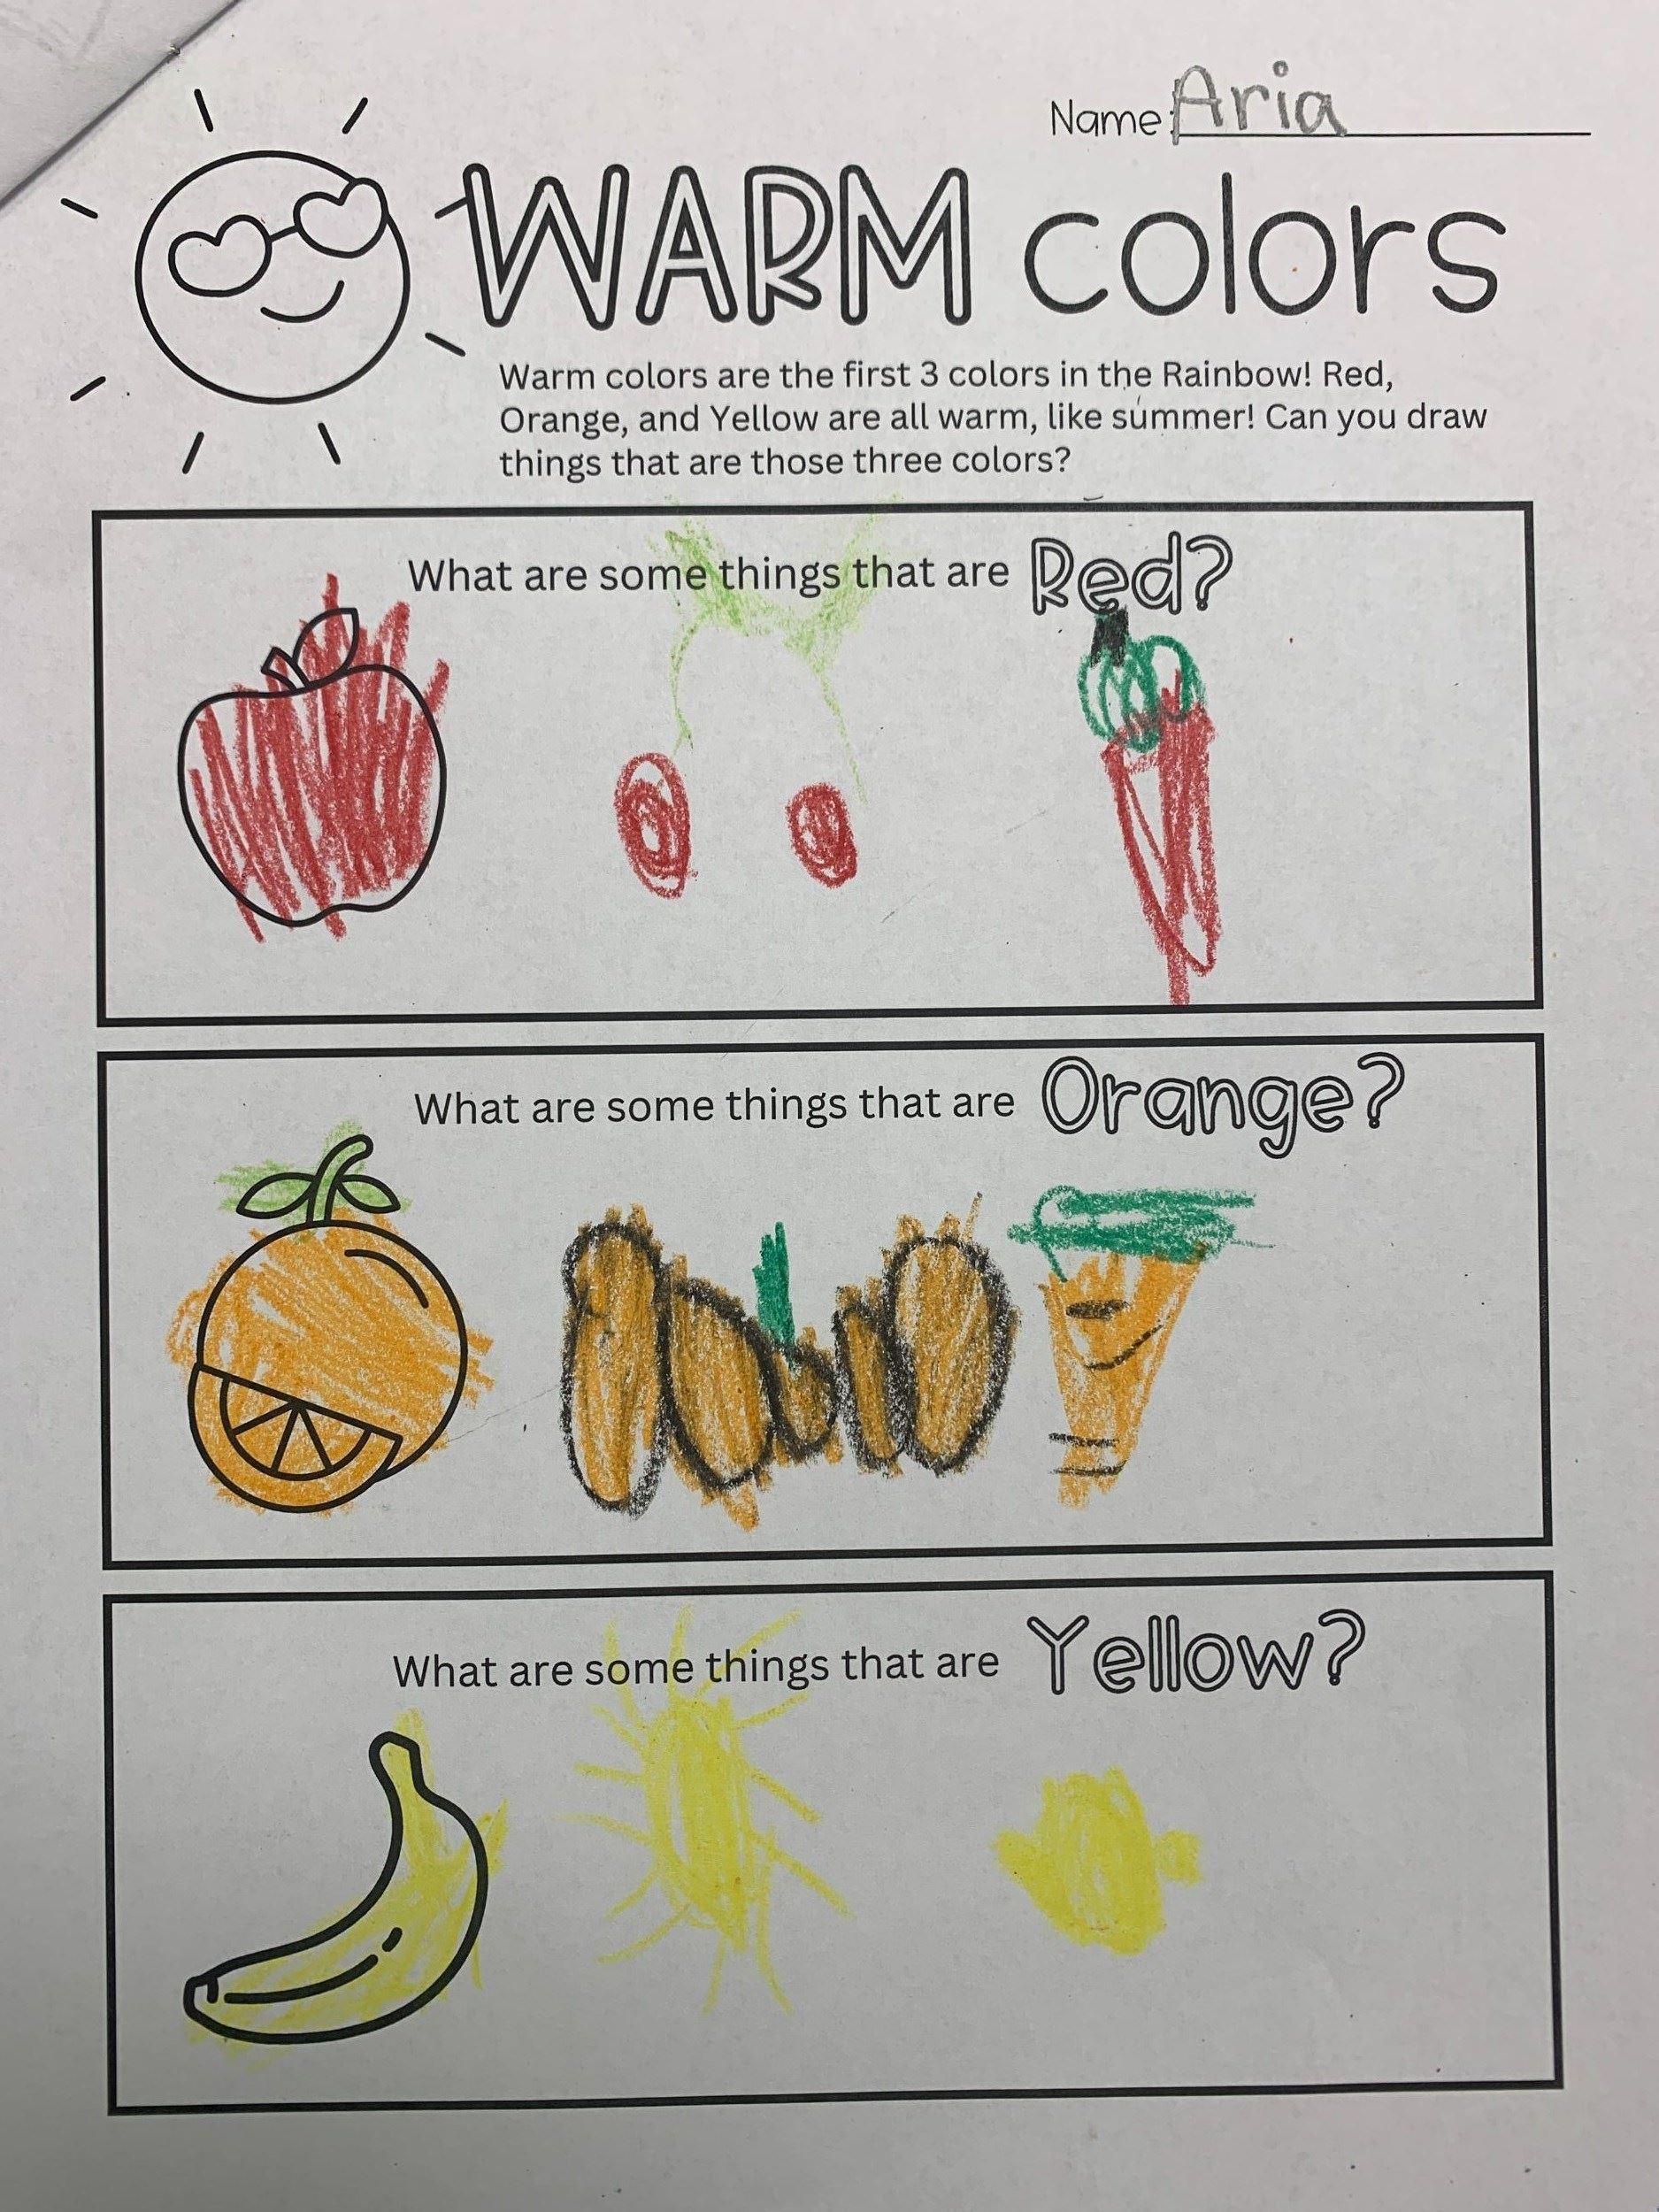 Name: Aria
WARM colors
Warm colors are the first 3 colors in the Rainbow! Red,
Orange, and Yellow are all warm, like summer! Can you draw
things that are those three colors?
What are some things that are Red?
What are some things that are Orange?
What are some things that are Yellow?